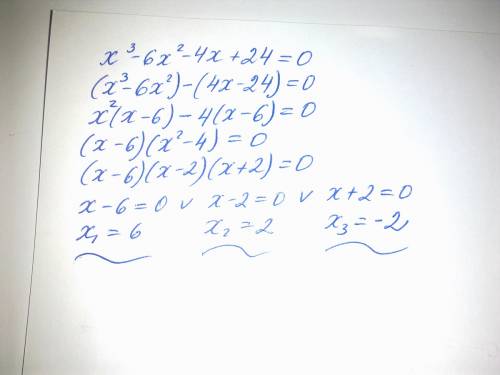 x³-6x²-4x+24=0
(x³-6x²)-(4x-24)=0
x²(x-6)-4(x-6)=0
(x-6)(x²-4)=0
(x-6)(x-2)(x+2)=0
x-6=0 ∨ x-2=0 ∨ x+2=0
x₁=6 x₂=2 x₃=-2